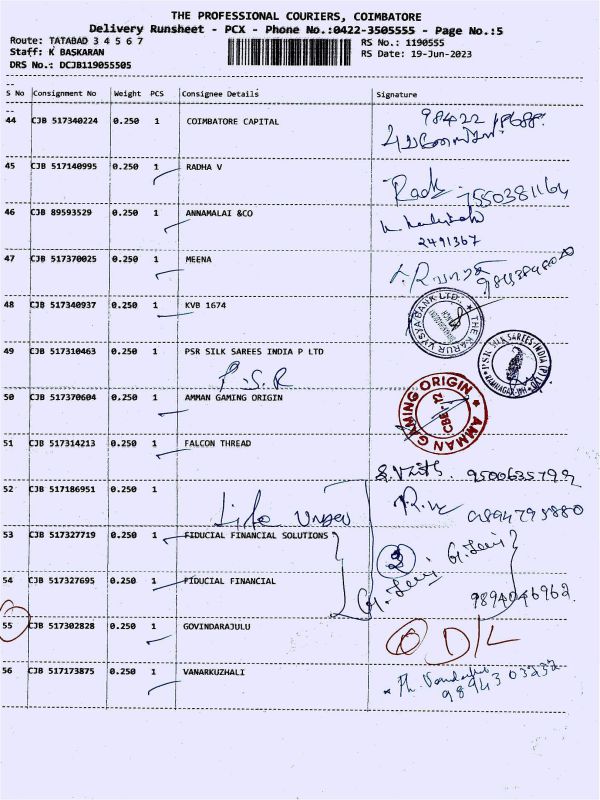 THE PROFESSIONAL COURIERS, COIMBATORE
Delivery Runsheet - PCX - Phone No.:0422-3505555 - Page No.:5
Route: TATABAD 3 4 5 6 7
RS No.: 1190555
Staff: K BASKARAN
RS Date: 19-Jun-2023
DRS No.: DCJB119055505
S No Consignment No Weight PCS Consignee Details Signature
44 CJB 517340224 0.250 1 COIMBATORE CAPITAL
45 CJB 517140995 0.250 1 RADHA V
7550381164
46 CJB 89593529 0.250 1 ANNAMALAI &CO
2491367
47 CJB 517370025 0.250 1 MEENA
48 CJB 517340937 0.250 1 KVB 1674
THE KARUR VYSYA BANK LTD.
49 CJB 517310463 0.250 1 PSR SILK SAREES INDIA P LTD
P.S.R
PSR SILK SAREES INDIA (P) LTD
50 CJB 517370604 0.250 1 AMMAN GAMING ORIGIN
AMMAN GAMING ORIGIN
CBE-12
51 CJB 517314213 0.250 1 FALCON THREAD
52 CJB 517186951 0.250 1
9894795880
53 CJB 517327719 0.250 1 FIDUCIAL FINANCIAL SOLUTIONS
2
54 CJB 517327695 0.250 1 FIDUCIAL FINANCIAL
9894046962.
55 CJB 517302828 0.250 1 GOVINDARAJULU
D/L
56 CJB 517173875 0.250 1 VANARKUZHALI
9894303232